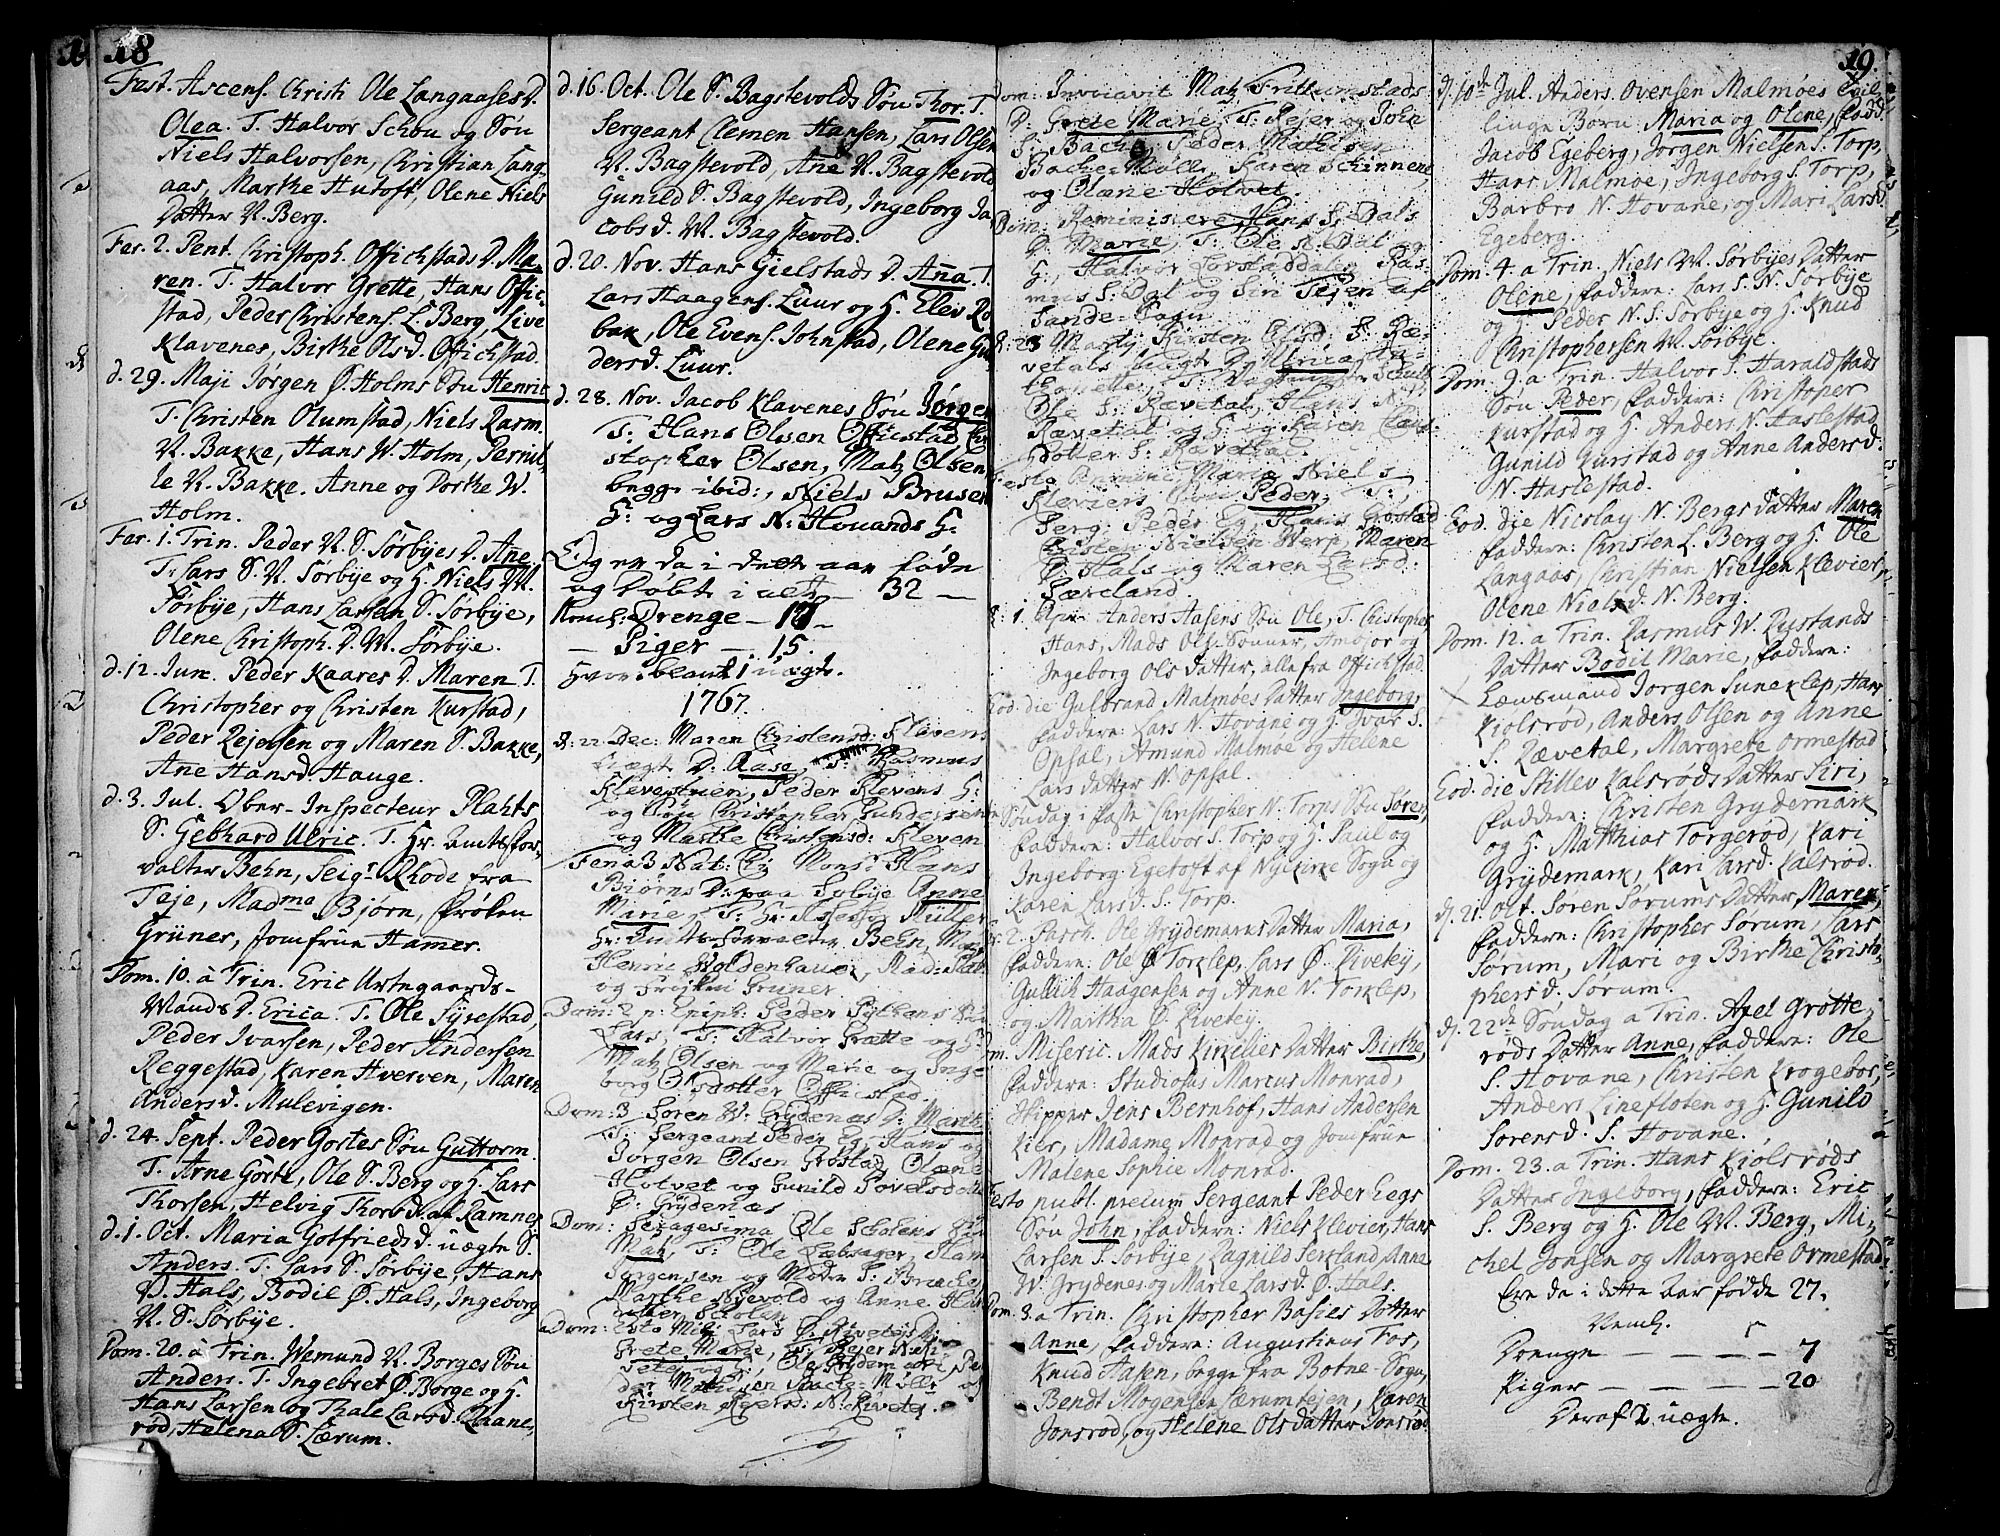 18
Fest. Ascens. Christi Ole Langaases D.
Olea. T. Halvor Schou og Søn
Niels Halvorsen, Christian Lang,
aas, Marthe Hutoft, Olene Niels
Datter N. Berg.
Fer. 2. Pent. Christoph. Offichstads D. Ma,
ren. T. Halvor Grette, Hans Offic,
stad, Peder Christens. L. Berg, Live
Klavenes, Birthe Olsd. Offichstad.
d. 29. Maji Jørgen Ø. Holms Søn Henric
T. Christen Olumstad, Niels Rasm.
N. Bakke, Hans W. Holm, Pernil,
le N. Bakke. Anne og Dorthe W.
Holm.
Fer. 1. Trin. Peder N. S. Sørbyes D. Ane
T. Lars S. N. Sørbye og H. Niels W.
Sørbye, Hans Larsen S. Sørbye,
Olene Christoph. D. W. Sørbye.
d. 12. Jun. Peder Kaares D. Maren T.
Christopher og Christen Kurstad,
Peder Rejersen og Maren S. Bakke,
Ane Hansd. Hauge.
d. 3. Jul. Ober-Inspecteur Plahts
S. Gebhard Ulric. T. Hr. Amtsfor,
valter Behn, Seigr. Rhode fra
Teje, Madme Bjørn, Frøken
Grüner, Jomfrue Hamer.
Dom. 10. a Trin. Eric Urtegaards-
Mands D. Erica. T. Ole Syrestad,
Peder Ivarsen, Peder Andersen
Reggestad, Karen Hverven, Maren
Anders d. Mulevigen.
d. 24. Sept. Peder Gortes Søn Guttorm.
T. Arne Gorte, Ole S. Berg og H. Lars
Thorsen, Helvig Thorsd. af Ramnes
d. 1. Oct. Maria Gotfriedsd. uægte S.
Anders. T. Lars S. Sørbye, Hans
Ø. Hals, Bodil Ø. Hals, Ingeborg
N. S. Sørbye.
Dom. 20. a Trin. Wemund N. Borges Søn
Anders. T. Ingebret Ø. Borge og H.
Hans Larsen og Thale Larsd. Raane,
rød, Helena S. Lærum.
d. 16. Oct. Ole S. Bagstevolds Søn Thor. T.
Sergeant Clemen Hansen, Lars Olsen
N. Bagstevold, Ane N. Bagstevold
Gunild S. Bagstevold, Ingeborg Ja
cobs d. N. Bagstevold.
d. 20. Nov. Hans Gielstads D. Ana. T.
Lars Haagens. Luur og H. Elev Ro
bak, Ole Evens. Johnstad, Olene Gu,
dersd. Luur.
d. 28. Nov. Jacob Klavenes Søn Jørgen
T: Hans Olsen Offistad, Chr
stopher Olsen, Matz Olsen
begge ibid:, Niels Brusen
H: og Lars N: Houands H:
Og er da i dette aar føde
og døbt i alt – 32 –
Neml: Drenge – 17 –
– Piger – 15.
Hvor iblant 1 uægt.
1767.
d: 22 Dec: Maren Christensd: Klavens
uægt D: Aase, T: Rasmus
Klevestuen, Peder Klevens H:
og Søn Christopher Gundersen
og Marthe Christensd: Kleven
Fer: 3 Nat: Ch: Mons: Hans
Biørns D: paa Solbye Anne
Marie, T: Hr. Assessor Müller
Hr: Amts-Forvalter Behn, Mons:
Henric Woldenhauer, Mad: Plat
og Frøjken Gruner.
Dom: 2 p: Epiph: Peder Sylhens Søn
Lars, T: Halvor Grætte og H:
Matz Olsen og Marie og Inge
borg Olsdotter Offistad.
Dom: 3 Søren W: Grydenæs D: Marthe
T: Sergeant Peder Eg, Hans og
Jorgen Olsen Grostad, Olæne
Holvet og Gunild Povelsdotter
Ø: Grydenæs
Dom: Sexagesima Ole Scholens Søn
Matz, T: Ole Labsager, Hans
Jørgensen og Moder S: Bræche
Marthe Nievold og Anne Hans
Dotter Scholen
Dom: Esto Mihi Lars Ø: Kivetejs D:
Grete Marie, T: Rejer N: Ki
vetej og H:, Ole Grydemark, Pe
der Mathisen Backe-Mølle og
Kirsten Rejersd: N: Kivetej.
19
Dom: Invocavit Matz Frittumstads
D: Grete Marie, T: Rejer og John
S: Bache, Peder Mathisen
Backe-Mølle, Karen Schinnene,
og Olæne Holvet.
Dom: Reminiscere Hans S: Dals
D: Marie, T: Ole N: Dal og
H:, Halvor Lorstaddalen, Ras
mus S: Dal og Siri Tejen af
Sande-Sogn
d: 25 Martij Kirsten Olsd: S: Ræ
vetals uægt D: Ulrica
Ole S: Rævetal, Hans N:
Rævetal og H: og Karen Lars
dotter S: Rævethal.
Festo Annunc: Mariæ Niels
Kleviers Søn Peder, T:
Serg: Peder Eg, Hans Grostad
Christen Nielsen Nerp, Maren
Ø: Hals og Maren Larsd:
Særeland.
d: 1. Apr. Anders Aasens Søn Ole, T. Christopher,
Hans, Mads Ols-Sønner, Amborg og
Ingeborg Ols datter, alle fra Offichstad.
Eod. die Gulbrand Malmøes Datter Ingeborg,
faddere: Lars N. Hovane og H. Ivar S.
Opsal, Amund Malmøe og Helene
Lars datter N. Opsal.
Søndag i faste Christopher N. Torps Søn Søren,
faddere: Halvor S. Torp og H. Paul og
Ingeborg Egetoft af Nykirke Sogn og
Karen Larsd. S. Torp.
Fer. 2. Pasch. Ole Grydemarks Datter Maria,
faddere: Ole Ø. Torklep, Lars Ø. Kivetey,
Gullich Haagensen og Anne N. Torklep,
og Martha Ø. Kivetey.
Dom. Miseric. Mads Kirkelies Datter Birthe,
faddere: Studiosus Marcus Monrad,
Skipper Jens Bernhof, Hans Andersen
Kier, Madame Monrad og Jomfrue
Malene Sophie Monrad.
Festo publ. precum Sergeant Peder Eegs
Søn John, faddere: Niels Klevier, Hans
Larsen S. Sørbye, Ragnild Serkland, Anne
W. Grydenes og Marie Larsd. Ø. Hals.
Dom. 3. a Trin. Christopher Basies Datter
Anne, faddere: Augustinus Fos,
Knud Aasen, begge fra Botne-Sogn,
Bendt Mogensen Lærumtejen, Karen
Jonsrød, og Helene Ols datter Jonsrød
d. 10de Jul. Anders Ovensen Malmøes Tvil,
linge Børn Maria og Olene, fadd.
Jacob Egeberg, Jørgen Nielsen S. Torp,
Hans Malmøe, Ingeborg S. Torp,
Barbro N. Hovane, og Mari Larsd.
Egeberg.
Dom. 4. a Trin. Niels W. Sørbyes Datter
Olene, faddere: Lars S. N. Sørbye
og H. Peder N. S. Sørbye og H. Knud
Christophersen W. Sørbye.
Dom. 9. a Trin. Halvor S. Haraldstads
Søn Peder, faddere: Christoper
Kurstad og H. Anders N. Haslestad
Gunild Kurstad og Anne Andersd.
N. Haslestad.
Eod. die Nicolay N. Bergs datter Maren
faddere: Christen L. Berg og H. Ole
Langaas, Christian Nielsen Klevier,
Olene Nielsd. N. Berg.
Dom. 12. a Trin. Rasmus W. Rustands
Datter Bodil Marie, faddere:
Lensmand Jorgen Suneklep, Hans
Kiolsrød, Anders Olsen og Anne
S. Rævetal, Margrete Ormestad
Eod. die Stillev Kalsrøds Datter Siri,
faddere: Christen Grydemark
og H. Matthias Torgerød, Kari
Grydemark, Kari Larsd. Kalsrød.
d. 21. Oct. Søren Sørums Datter Maren,
faddere: Christopher Sørum, Lars
Sørum, Mari og Birthe Christo,
phersd. Sørum.
d. 22de Søndag a Trin. Axel Grøtte,
røds Datter Anne, faddere: Ole
S. Hovane, Christen Krogebor,
Anders Linefloten og H. Gunild
Sorensd. S. Hovane.
Dom. 23. a Trin. Hans Kiolsrøds
Datter Ingeborg, faddere: Eric
S. Berg og H. Ole W. Berg, Mi,
chel Jonsen og Margrete Ormestad.
Ere da i dette aar fødde 27.
Neml.
Drenge – – – – 7
Piger – – – – 20
Deraf 2 uægte.